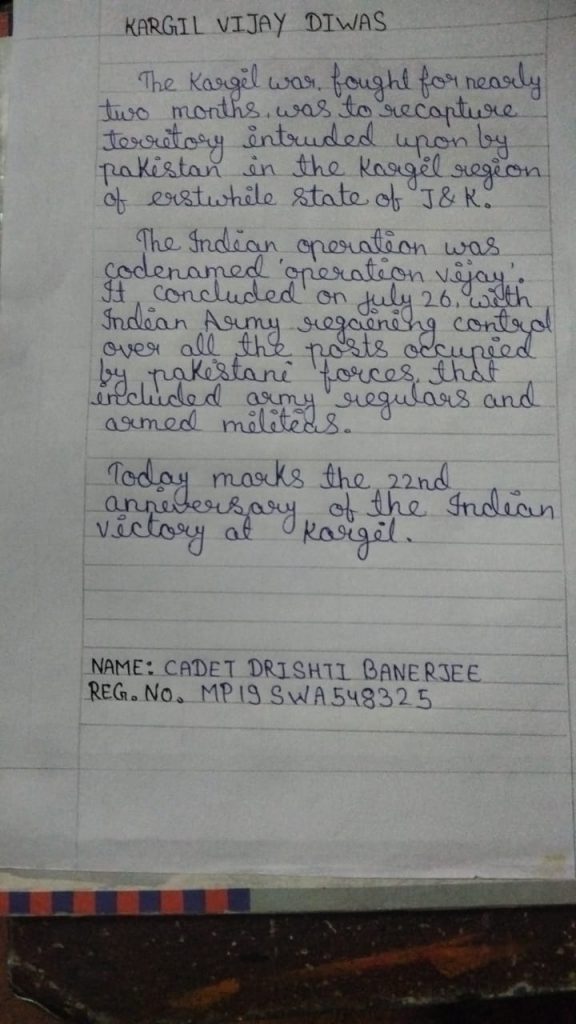 KARGIL VIJAY DIWAS
The Kargil war, fought for nearly
two months, was to recapture
territory intruded upon by
pakistan in the Kargil region
of erstwhile state of J & K.
The Indian operation was
codenamed 'operation vijay'.
It concluded on july 26, with
Indian Army regaining control
over all the posts occupied
by pakistani forces, that
included army regulars and
armed militias.
Today marks the 22nd
anniversary of the Indian
victory at Kargil.
NAME: CADET DRISHTI BANERJEE
REG. NO. MP19SWA548325